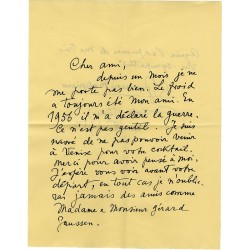 Cher ami,
depuis un mois je ne
me porte pas bien. Le froid
a toujours été mon ami. En
1956 il m'a déclaré la guerre.
Ce n'est pas gentil. Je suis
navré de ne pas pouvoir venir
à Venise pour votre cocktail.
Merci pour avoir pensé à moi.
J'espère vous voir avant votre
départ, en tout cas je n'oublie-
rai jamais des amis comme
Madame & Monsieur Girard